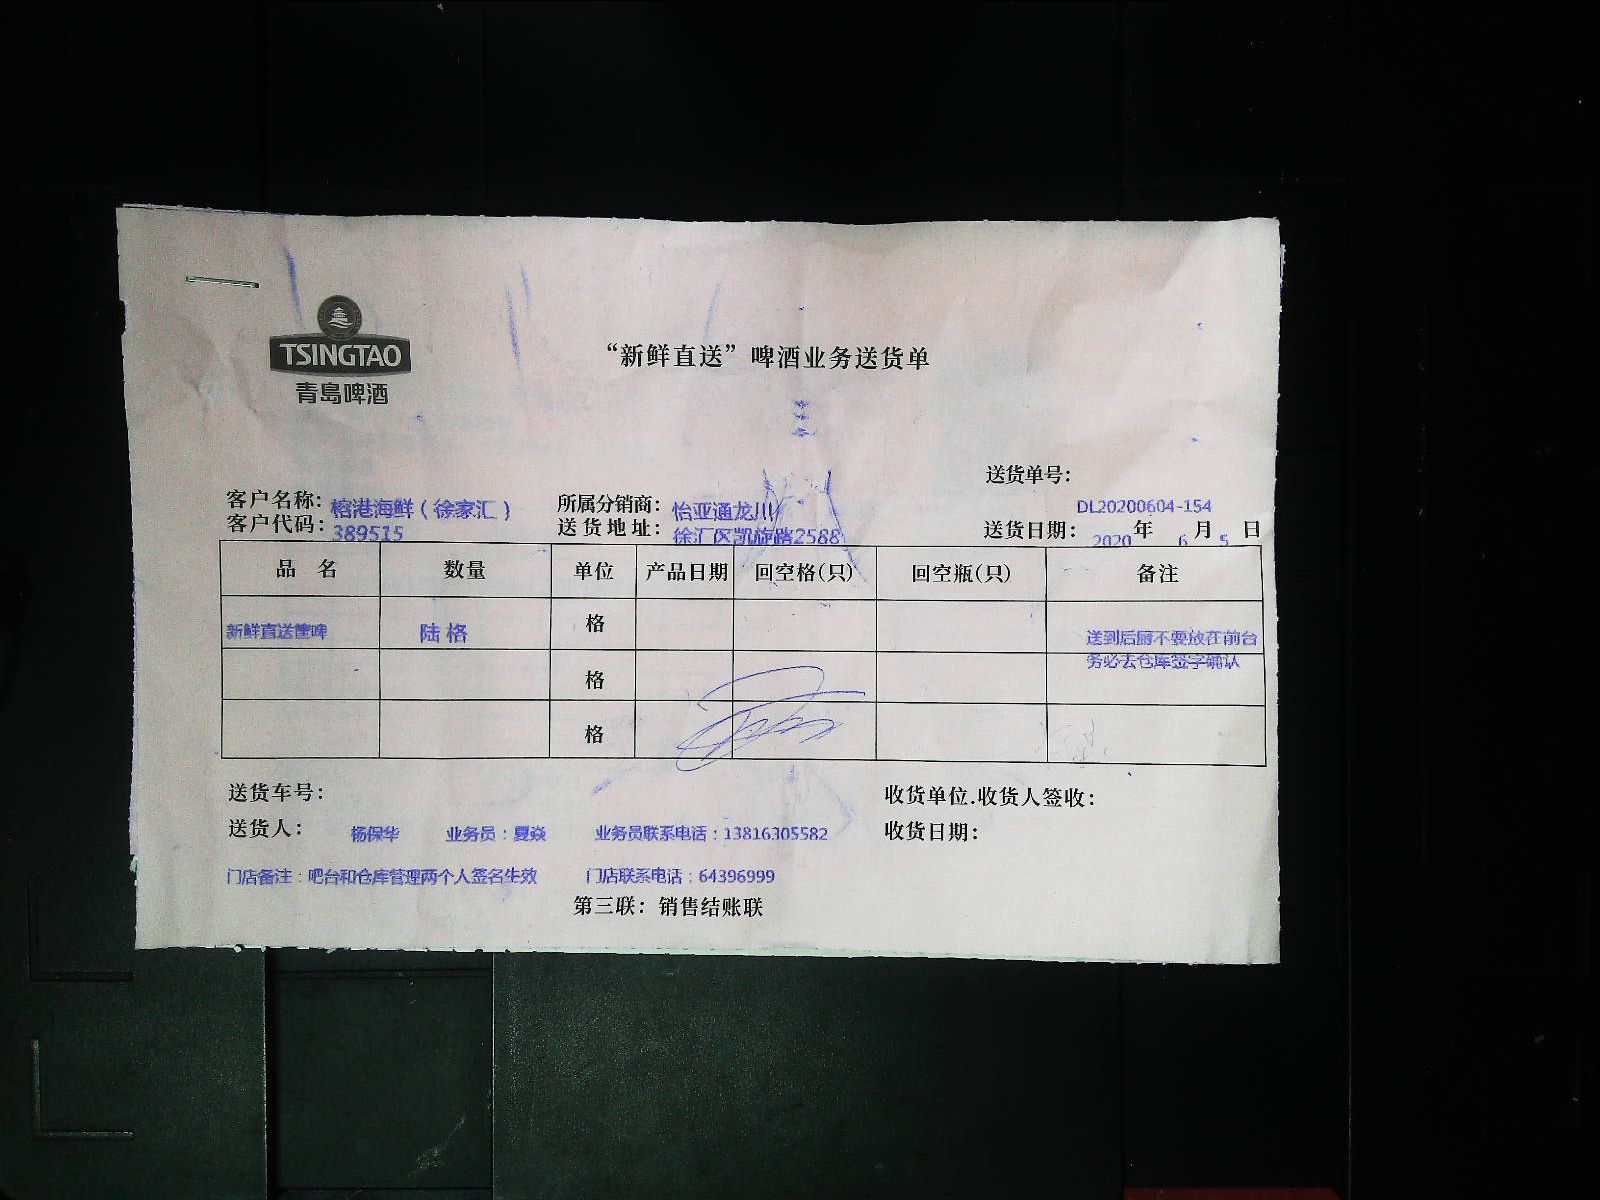 TSINGTAO
青島啤酒
“新鲜直送”啤酒业务送货单
送货单号：
DL20200604-154
客户名称：榕港海鲜（徐家汇） 所属分销商：怡亚通龙川
客户代码：389515 送货地址：徐汇区凯旋路2588 送货日期：2020年6月5日
品名 数量 单位 产品日期 回空格(只) 回空瓶(只) 备注
新鲜直送筐啤 陆格 格 送到后厨不要放在前台
务必去仓库签字确认
格
格
送货车号： 收货单位.收货人签收：
送货人： 杨保华 业务员：夏焱 业务员联系电话：13816305582 收货日期：
门店备注：吧台和仓库管理两个人签名生效 门店联系电话：64396999
第三联：销售结账联